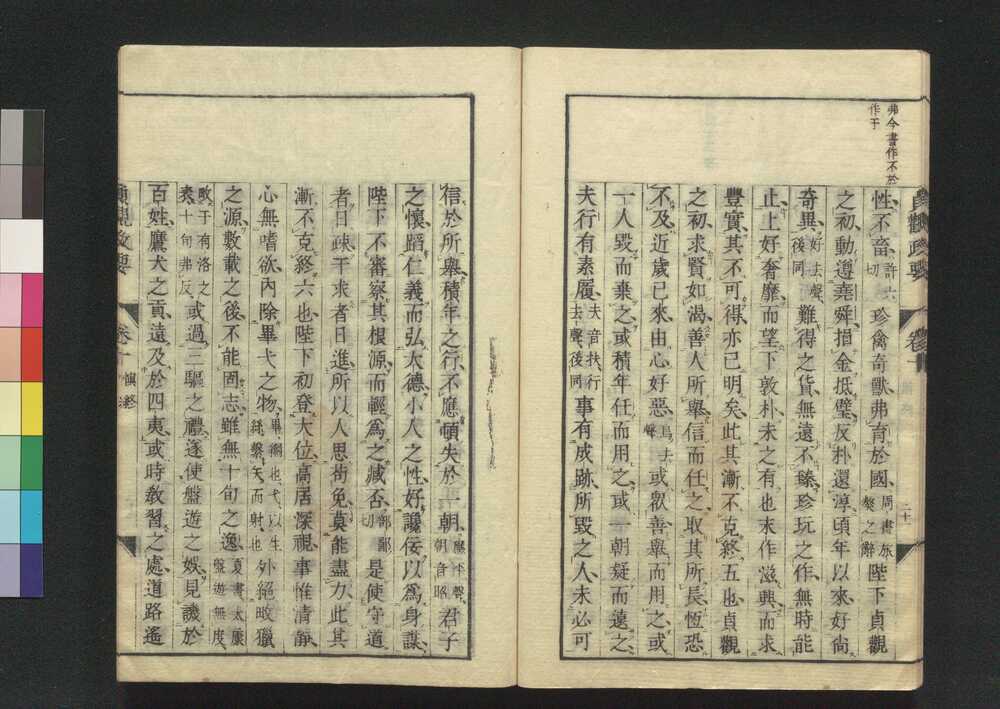 弗今書作不於
作于
貞觀政要 卷十 二十
性不畜許六切珍禽奇獸弗育於國周書旅獒之辭陛下貞觀
之初動遵堯舜捐金抵璧反朴還淳頃年以來好尚
奇異好去聲後同難得之貨無遠不臻珍玩之作無時能
止上好奢靡而望下敦朴未之有也末作滋興而求
豐實其不可得亦已明矣此其漸不克終五也貞觀
之初求賢如渴善人所舉信而任之取其所長恆恐
不及近歲已來由心好惡烏去聲或衆善舉而用之或
一人毀而棄之或積年任而用之或一朝疑而遠之
夫行有素履夫音扶行去聲後同事有成跡所毀之人未必可
信於所舉積年之行不應頓失於一朝應平聲朝音昭君子
之懷蹈仁義而弘大德小人之性好讒佞以爲身謀
陛下不審察其根源而輕爲之臧否部鄙切是使守道
者日疎干求者日進所以人思苟免莫能盡力此其
漸不克終六也陛下初登大位高居深視事惟清靜
心無嗜欲內除畢弋之物畢網也弋以生絲繫矢而射也外絕畋獵
之源數載之後不能固志雖無十旬之逸夏書太康盤遊無度
畋于有洛之表十旬弗反或過三驅之禮遂使盤遊之娛見譏於
百姓鷹犬之貢遠及於四夷或時教習之處道路遙
貞觀政要 卷十 愼終